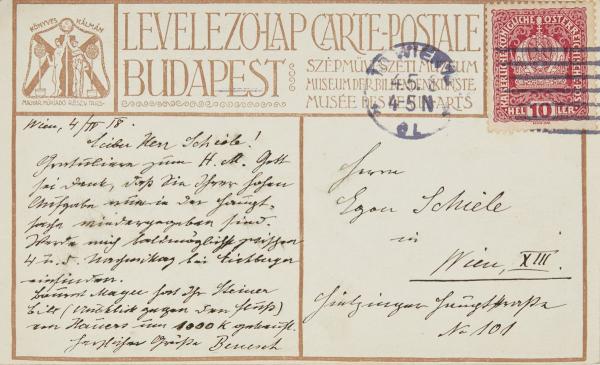 KÖNYVES KÁLMÁN
MAGYAR MŰKIADÓ RÉSZV. TÁRS.
LEVELEZŐ-LAP CARTE-POSTALE
BUDAPEST
SZÉPMŰVÉSZETI MUSEUM
MUSEUM DER BILDENDEN KÜNSTE
MUSÉE DES BEAUX-ARTS
WIEN
4-5 N
KAISERLICHE KÖNIGLICHE ÖSTERREICHISCHE POST
HELLER
10
Wien, 4/IV 18.
Lieber Herr Schiele!
Gratuliere zum H. M. Gott
sei Dank, daß Sie Ihrer hohen
Aufgabe nun in der Haupt-
sache wiedergegeben sind.
Werde mich baldmöglichst zwischen
4 u. Nachmittag bei
einfinden.
Baurat Mayer hat Ihr Steiner
Bild (Rückblick gegen den Fluß)
von Hauer um 1000 K gekauft.
Herzliche Grüße Benesch
Herrn
Egon Schiele
in
Wien, XIII.
Hietzinger Hauptstraße
No 101